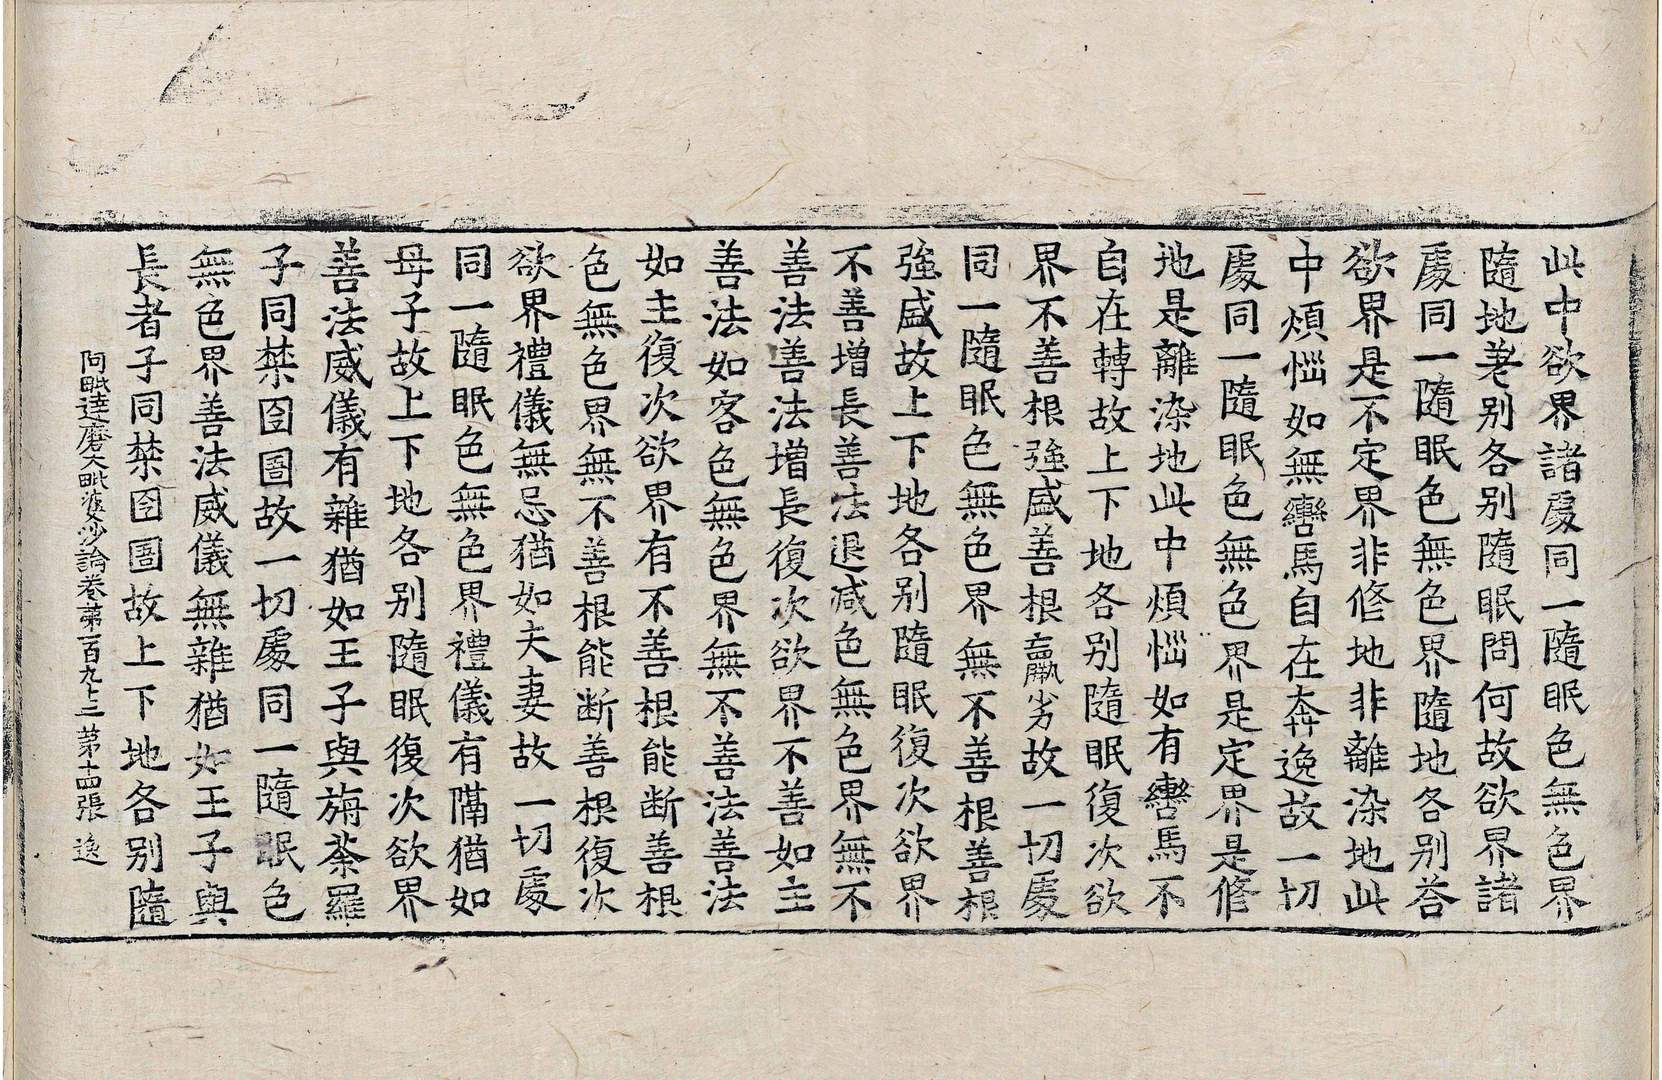 此中欲界諸處同一隨眠色無色界
隨地差别各别隨眠問何故欲界諸
處同一隨眠色無色界隨地各别荅
欲界是不定界非修地非離染地此
中煩惱如無轡馬自在奔逸故一切
處同一隨眠色無色界是定界是修
地是離染地此中煩惱如有轡馬不
自在轉故上下地各别隨眠復次欲
界不善根強盛善根羸劣故一切處
同一隨眠色無色界無不善根善根
強盛故上下地各别隨眠復次欲界
不善增長善法退減色無色界無不
善法善法增長復次欲界不善如主
善法如客色無色界無不善法善法
如主復次欲界有不善根能断善根
色無色界無不善根能断善根復次
欲界禮儀無忌猶如夫妻故一切處
同一隨眠色無色界禮儀有隔猶如
母子故上下地各别隨眠復次欲界
善法威儀有雜猶如王子與旃荼羅
子同禁囹圄故一切處同一隨眠色
無色界善法威儀無雜猶如王子與
長者子同禁囹圄故上下地各别隨
阿毗達磨大毗婆沙論卷第一百九十二 第十四張 逸